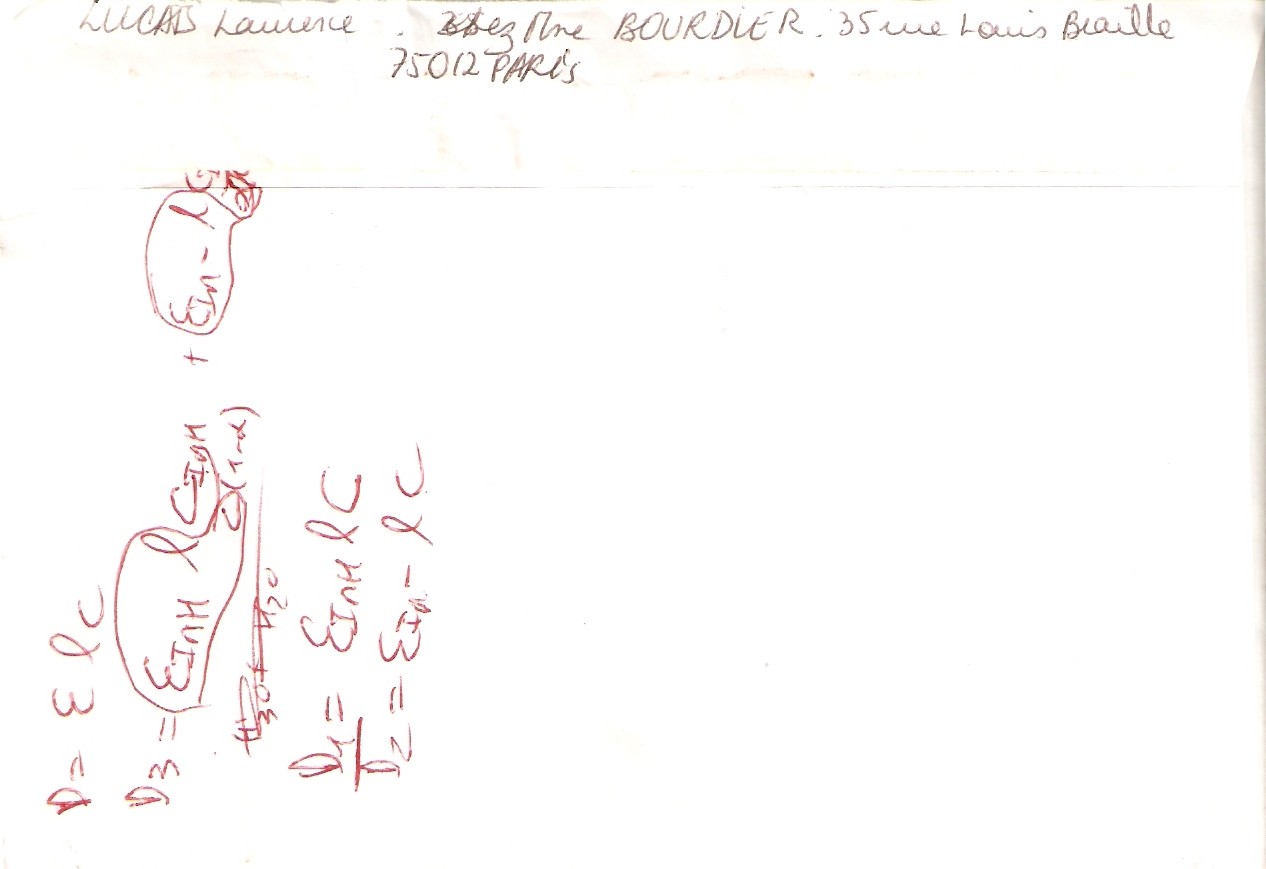 LUCAS Laurence . chez Mme BOURDIER. 35 rue Louis Braille
75012 PARIS
D = ε l C
D3 = εInH l CInH + εIn- l
C(1-α)
H3O+ H2O
D1 = εInH l C
D2 = εIn- l C